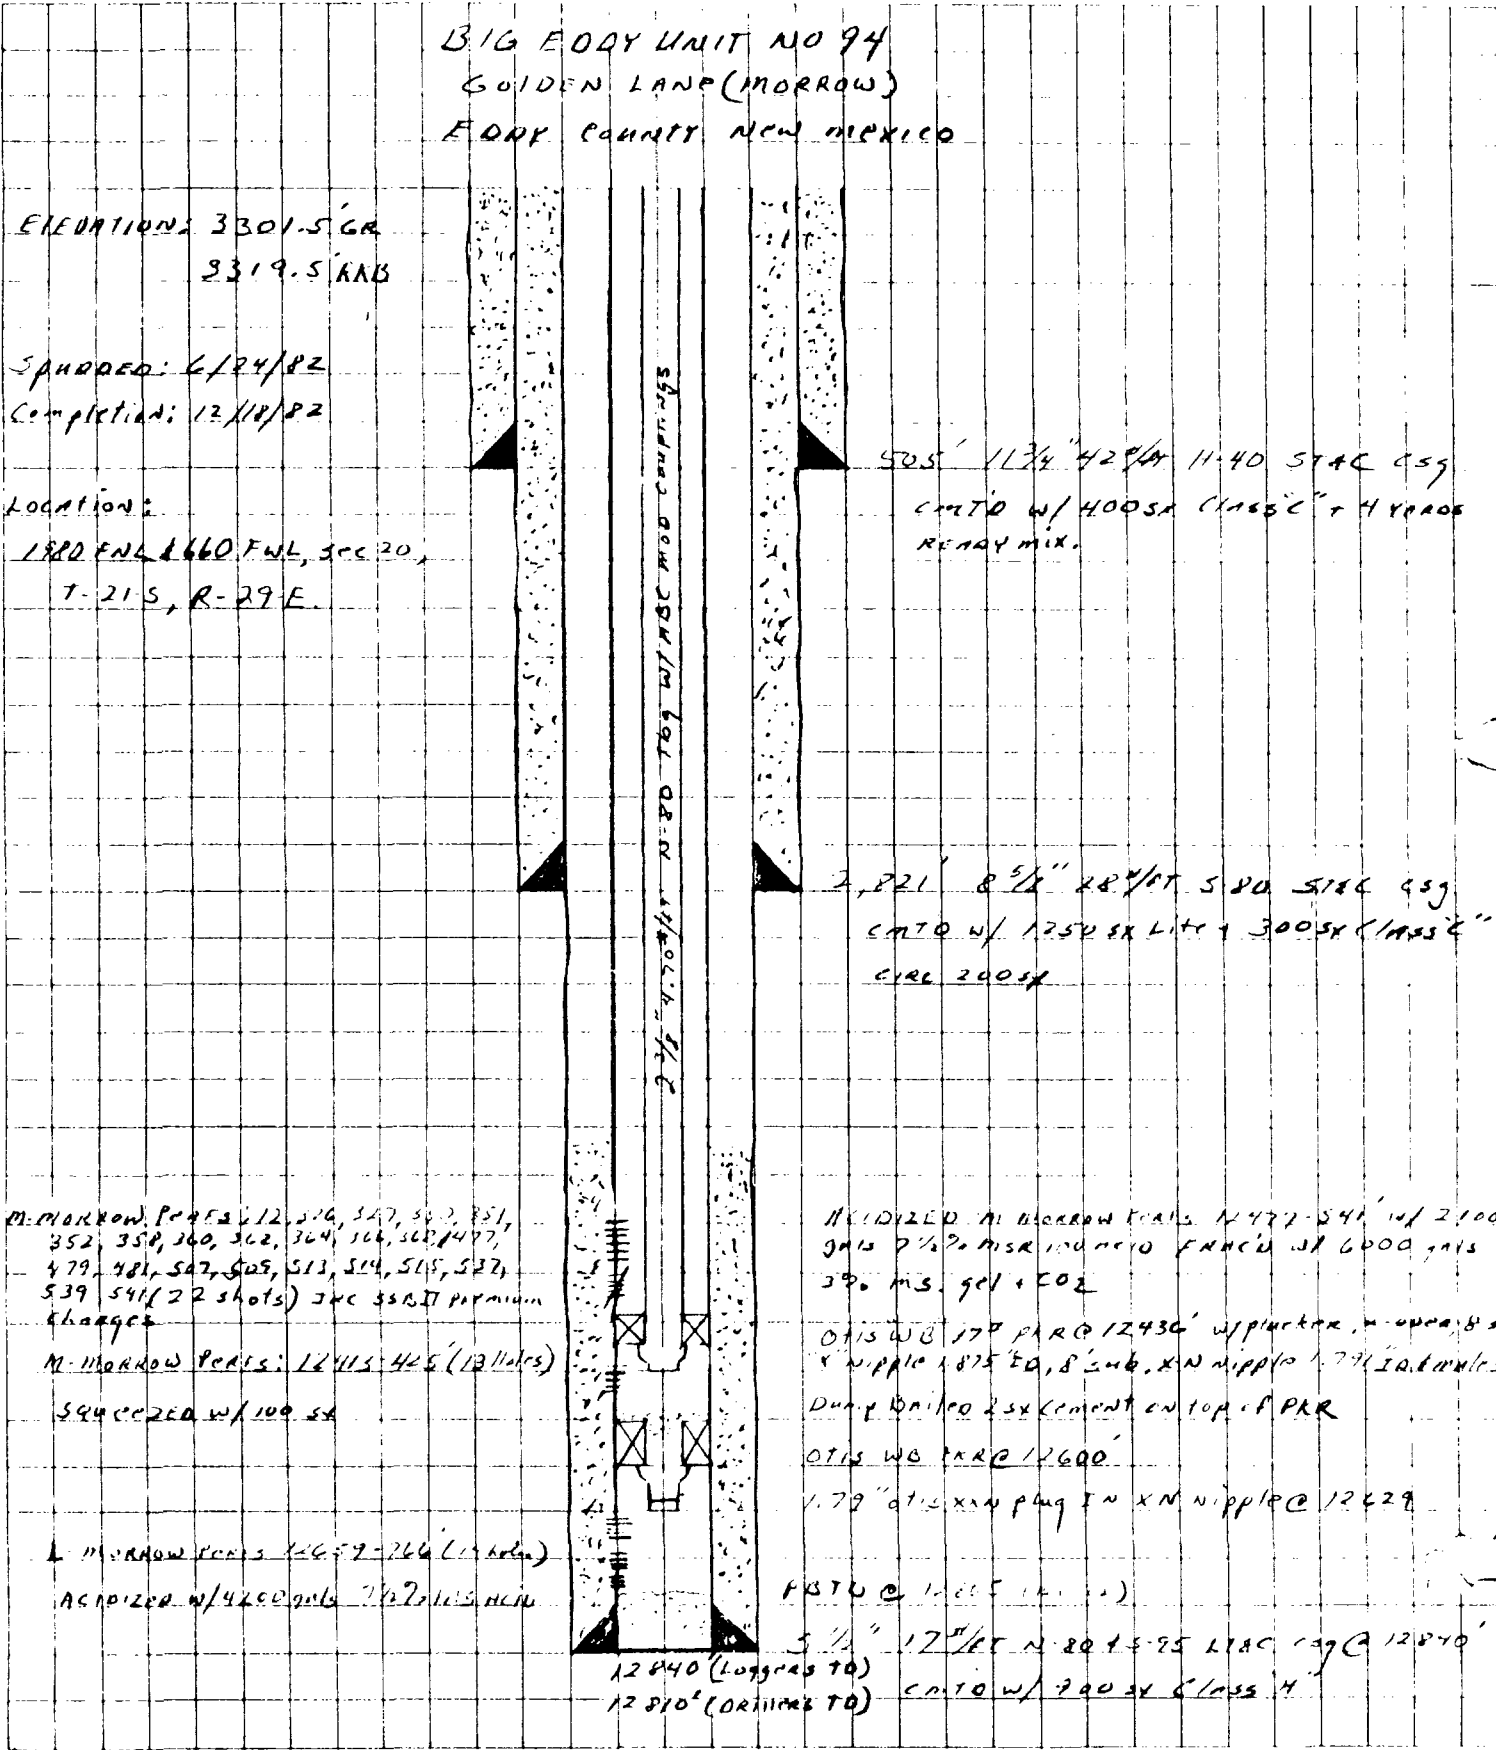 BIG EDDY UNIT NO 94
GOLDEN LANE (MORROW)
EDDY COUNTY NEW MEXICO
ELEVATION: 3301.5' GR
3319.5' RKB
SPUDDED: 6/24/82
Completion: 12/18/82
LOCATION:
1980 FNL & 660 FWL, SEC 20,
T-21-S, R-29-E.
2 7/8" 4.70#/ft N-80 Tbg W/ABC MOD Couplings
505' 11 3/4" 42#/ft H-40 ST&C CSg
CMTD W/ 400 SX Class "C" + 4 YARDS
READY MIX.
2,821' 8 5/8" 28#/FT S 80 ST&C CSg
CMTD W/ 1250 SX Lite + 300 SX Class "C"
CIRC 200 SX
M-MORROW PERFS: 351,
352, 358, 360, 362, 364,
479, 481, 507, 509, 513, 514, 515, 537,
539 541 (22 shots) SSBII Premium
Charges
M-MORROW Perfs: 12415-425' (13 Holes)
Squeezed W/ 100 SX
L MORROW Perfs 12659-766'
ACIDIZED W/ 4200 gals 7 1/2%
ACIDIZED M MORROW Perfs 12477-541' W/ 2100
gals 7 1/2% FRAC'd W/ 6000 gals
3% gel + CO2
OTIS WB PKR @ 12436'
X Nipple 1.875 ID, 8' sub, XN Nipple 1.791 ID
Dump Bailed 2 SX Cement on top of PKR
OTIS WB PKR @ 12600'
1.79" Otis XXN plug IN XN Nipple @ 12629
PBTD @
5 1/2" 17#/FT N-80 & S-95 LT&C CSg @ 12840'
CMTD W/ 700 SX Class H
12840' (Loggers TD)
12810' (DRILLERS TD)